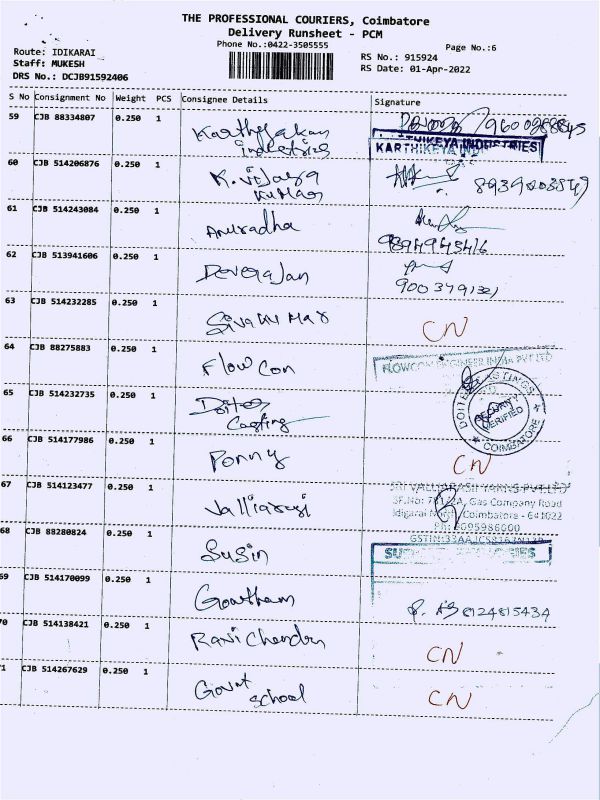 THE PROFESSIONAL COURIERS, Coimbatore
Delivery Runsheet - PCM
Phone No.:0422-3505555
Page No.:6
Route: IDIKARAI
Staff: MUKESH
DRS No.: DCJB91592406
RS No.: 915924
RS Date: 01-Apr-2022
S No Consignment No Weight PCS Consignee Details Signature
59 CJB 88334807 0.250 1
KARTHIKEYA INDUSTRIES
60 CJB 514206876 0.250 1 K. Vijaya
Kumar
61 CJB 514243084 0.250 1 Anuradha
9894945416
62 CJB 513941606 0.250 1 Devarajan
63 CJB 514232285 0.250 1 Sivakumar CN
64 CJB 88275883 0.250 1 Flow Con
FLOWCON ENGINEER INDIA PVT LTD
65 CJB 514232735 0.250 1
Casting
SECURITY
VERIFIED
COIMBATORE
66 CJB 514177986 0.250 1 Ponny CN
67 CJB 514123477 0.250 1 Valliarasi
SRI VALLIARASI YARNS PVT LTD
Gas Company Road
Idigarai North, Coimbatore - 641022
68 CJB 88280824 0.250 1 Susin
69 CJB 514170099 0.250 1 Goutham 8124815434
70 CJB 514138421 0.250 1 Ravi Chandra CN
71 CJB 514267629 0.250 1 Govt
School CN